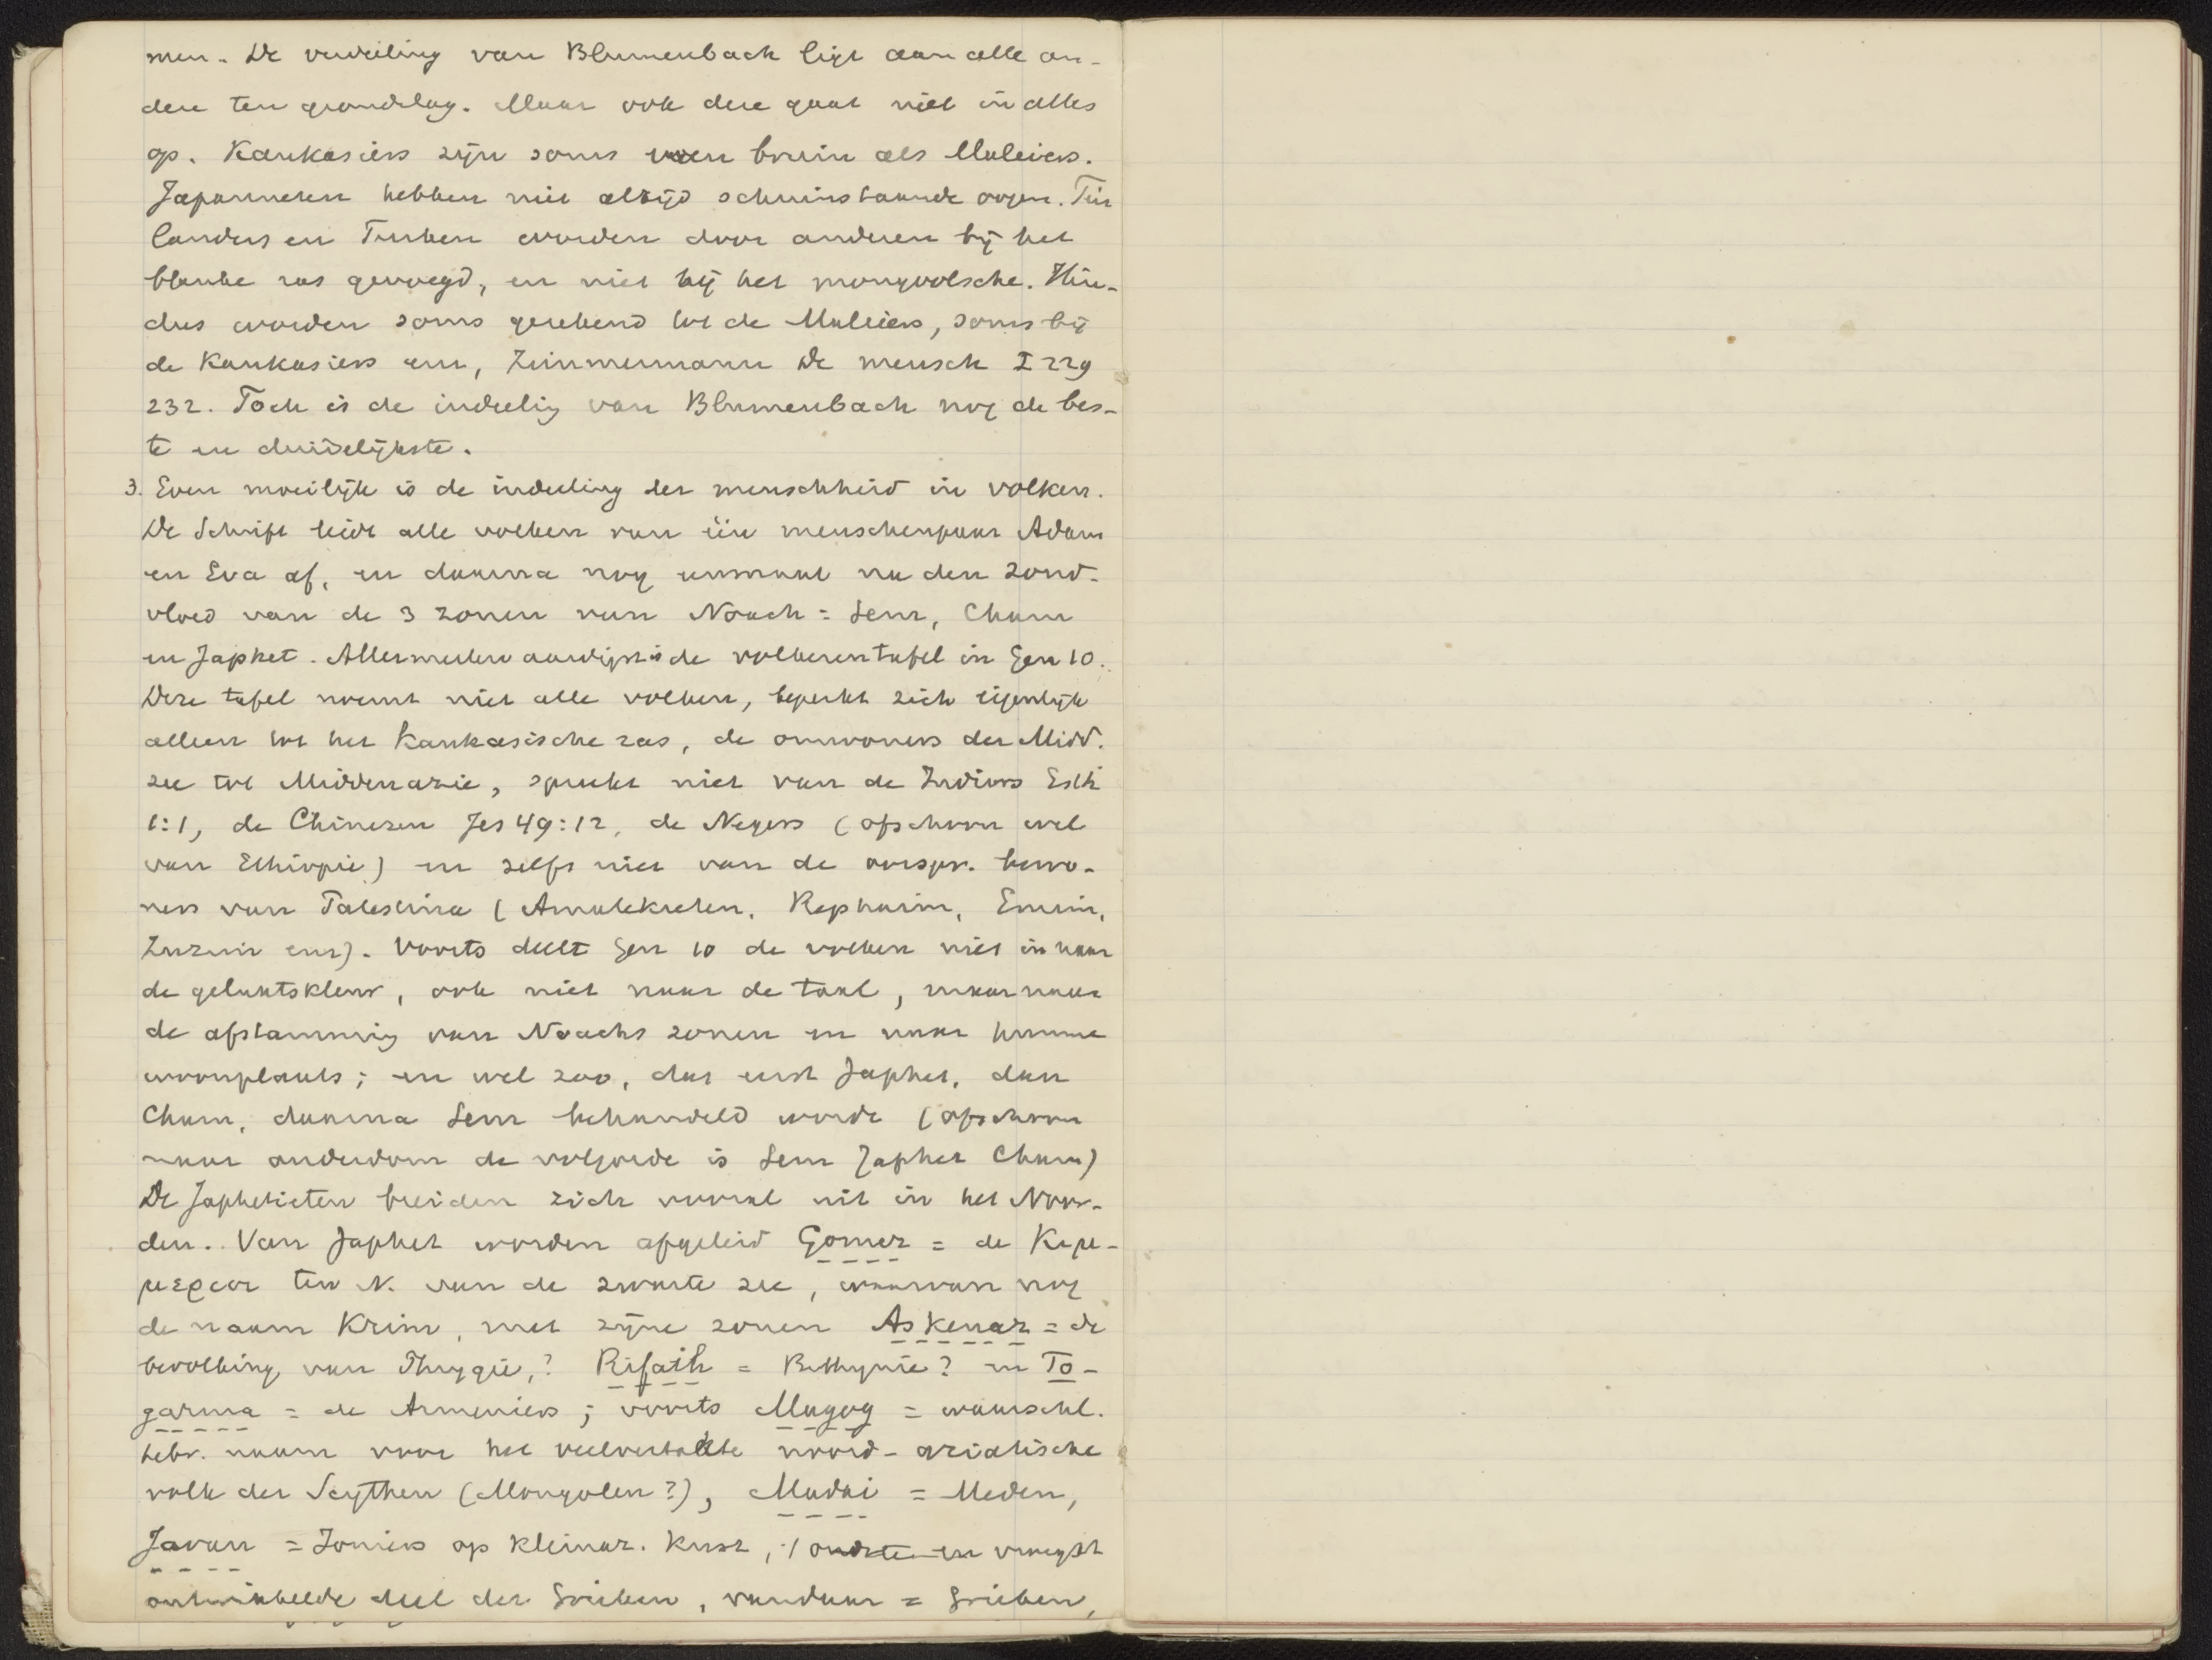 men. De verdeeling van Blumenbach ligt aan alle an-
dere ten grondslag. Maar ook deze gaat niet in alles
op. Kaukasiers zijn soms even bruin als Maleiers.
Japanneezen hebben niet altijd schuinstaande oogen. Fin
landers en Turken worden door anderen bij het
blanke ras gevoegd, en niet bij het mongoolsche. Hin-
dus worden soms gerekend tot de Maleiers, soms bij
de Kaukasiers enz, Zimmermann De mensch I 229
232. Toch is de indeelig van Blumenbach nog de bes-
te en duidelijkste.
3. Even moeilijk is de indeeling der menschheid in volken.
De Schrift leidt alle volken van één menschenpaar Adam
en Eva af, en daarna nog eenmaal na den zond-
vloed van de 3 zonen van Noach = Sem, Cham
en Japhet. Allermerkwaardigst is de volkerentafel in Gen 10.
Deze tafel noemt niet alle volken, beperkt zich eigenlijk
alleen tot het Kaukasische ras, de omwoners der Midd.
zee tot Middenazie, spreekt niet van de Indiers Esth
1:1, de Chinezen Jes 49:12, de Negers (ofschoon wel
van Ethiopie) en zelfs niet van de oorspr. bewo-
ners van Palestina (Amalekieten, Rephaim, Emim,
Zuzim enz). Voorts deelt Gen 10 de volken niet in naar
de gelaatskleur, ook niet naar de taal, maar naar
de afstammig van Noachs zonen en naar hunne
woonplaats; en wel zoo, dat eerst Japhet, dan
Cham, daarna Sem behandeld wordt (ofschoon
naar ouderdom de volgorde is Sem Japhet Cham)
De Japhetieten breiden zich vooral uit in het Noor-
den. Van Japhet worden afgeleid Gomer = de Κιμ-
μεριοι ten N. van de zwarte zee, waarvan nog
de naam Krim, met zijne zonen Askenaz = de
bevolking van Phrygië,? Rifath = Bithynie? en To-
garma = de Armeniers; voorts Magog = waarschl.
hebr. naam voor het veelvertakte noord-aziatische
volk der Scythen (Mongolen?), Madai = Meden,
Javan = Joniers op kleinaz. Kust, 't oudste en vroegst
ontwikkelde deel der Grieken, vandaar = Grieken,